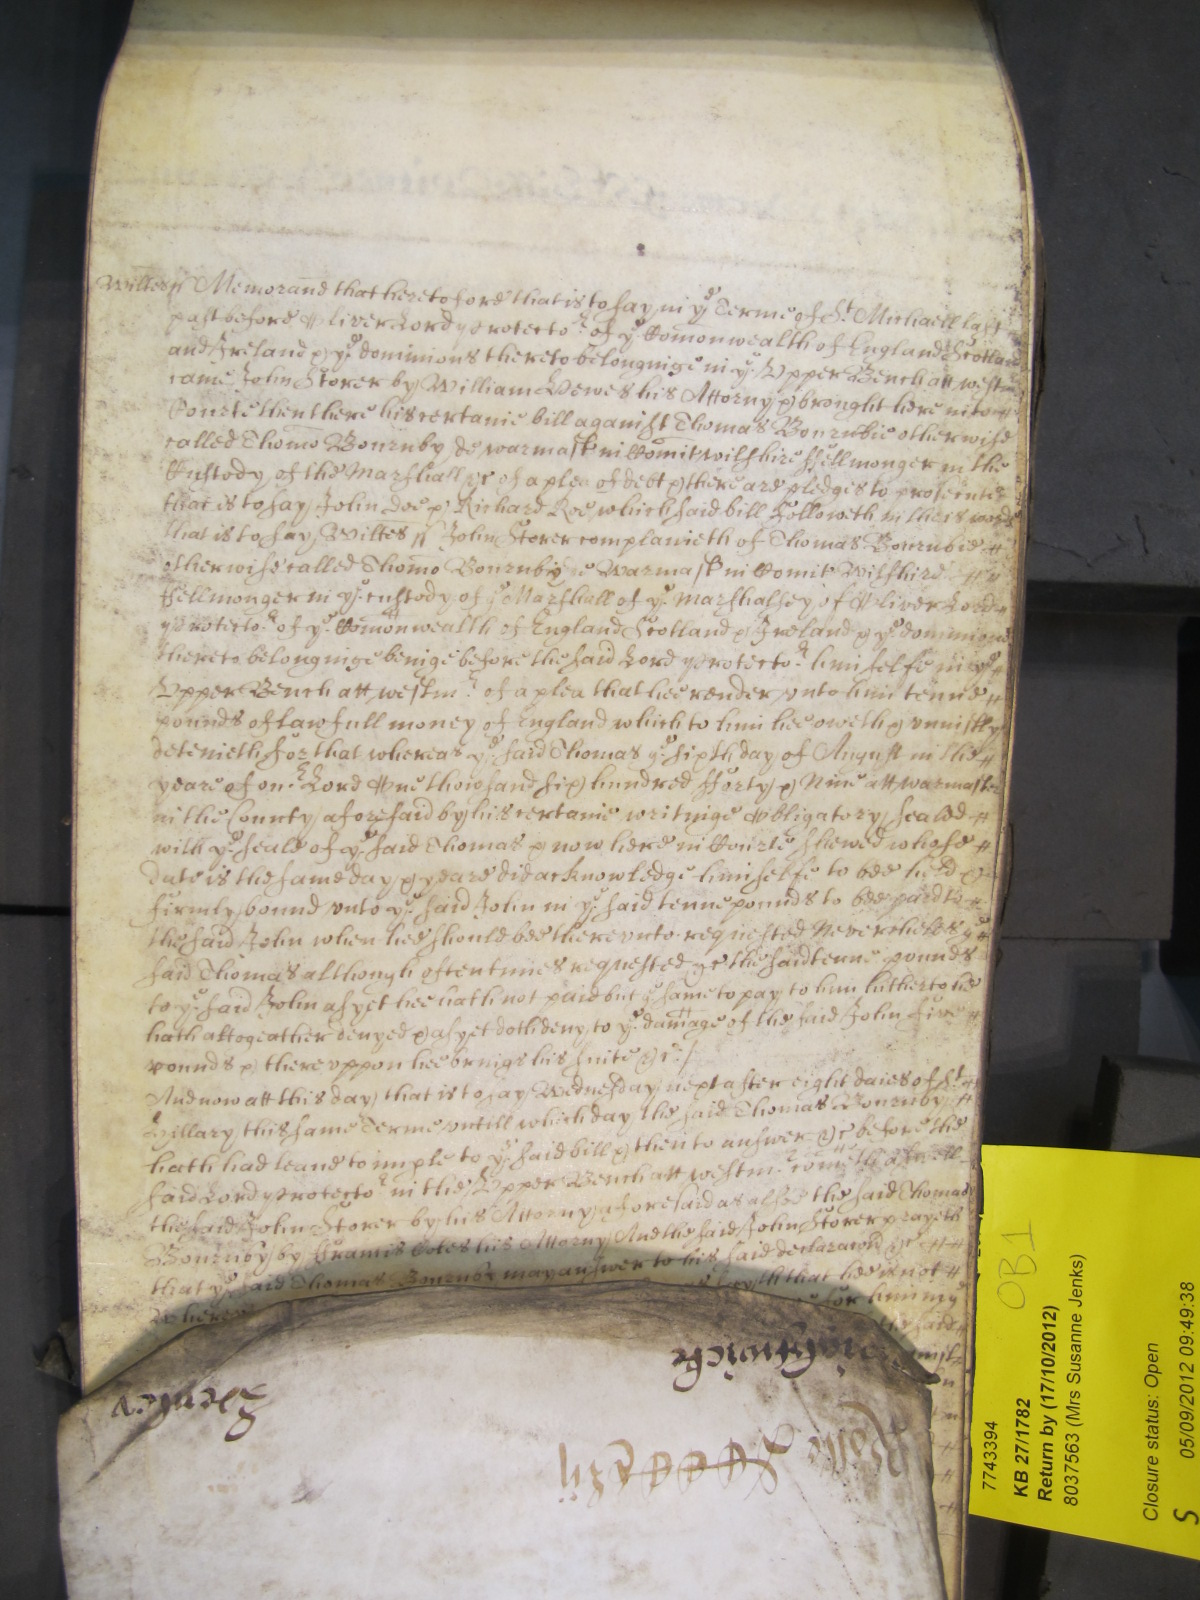 Wiltes ss Memorand that heretofore that is to say in ye Terme of St Michaell last
past before Oliver Lord Protector of ye Comonwealth of England Scotland
and Ireland & ye dominions thereto belonginge in ye Upper Bench att Westm
came John Storer by William Dewes his Attorny & brought here into ye
Courte then there his certaine bill against Thomas Bournbie otherwise
called Thomo Bournby de Warmastr in Comit Wilshire ffellmonger in the
Custody of the Marshall &c of a plea of debt & there are pledges to prosecute
that is to say John Doe & Richard Roe which said bill followeth in theis words
that is to say Wiltes ss John Storer complaineth of Thomas Bournbie
otherwise called Thomo Bournby de Warmastr in Comit Wilshire
ffellmonger in ye custody of ye Marshall of ye Marshalsey of Oliver Lord
Protector of ye Comonwealth of England Scotland & Ireland & ye dominions
thereto belonginge beinge before the said Lord Protector himselfe in ye
Upper Bench att Westmr of a plea that hee render unto him tenne
pounds of lawfull money of England which to him hee oweth & uniustly
detenieth For that whereas ye said Thomas ye sixth day of August in the
yeare of our Lord One thousand six hundred fforty & Nine att Warmaster
in the County aforesaid by his certaine writinge Obligatory sealed
with ye seale of ye said Thomas & now here in Courte shewed whose
date is the same day & yeare did acknowledge himselfe to bee held &
firmly bound unto ye said John in ye said tenne pounds to bee paid to
the said John when hee should bee thereunto requested Neverthelesse ye
said Thomas although oftentimes requested &c the said tenne pounds
to ye said John as yet hee hath not paid but ye same to pay to him hitherto he
hath altogeather denyed & as yet doth deny to ye damage of the said John Five
pounds & thereuppon hee brings his suite &c
And now att this day that is to say Wednesday next after eight daies of St
Hillary this same Terme untill which day the said Thomas Bournby
hath had leave to imple to ye said bill & then to answer &c before the
said Lord Protector in the Upper Bench att Westmr cometh aswell
the said John Storer by his Attorny aforesaid as alsoe the said Thomas
Bournby by Francis Cotes his Attorny And the said John Storer prayeth
that ye said Thomas Bournby may answer to his said declaracon &c
Where that hee is not
for him
the said
7743394
KB 27/1782
Return by (17/10/2012)
8037563 (Mrs Susanne Jenks)
OB1
Closure status: Open
S
05/09/2012 09:49:38